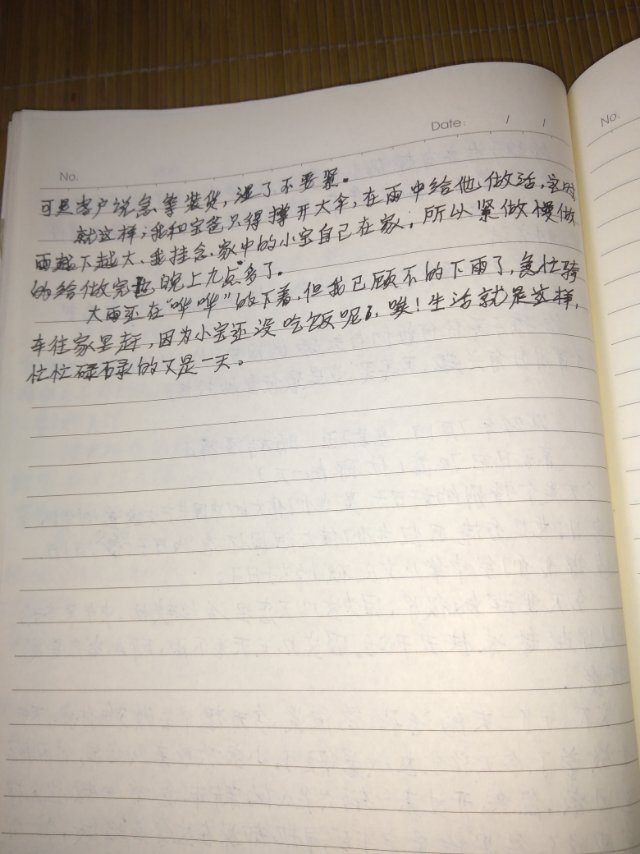 Date: / /
No.
No.
可是客户说急等装货，湿了不要紧。
就这样，我和宝爸只得撑开大伞，在雨中给他做活，家的
雨越下越大，我挂念家中的小宝自己在家，所以紧做慢做
的给做完，晚上九点多了。
大雨还在“哗哗”的下着，但我已顾不的下雨了，急忙骑
车往家里赶，因为小宝还没吃饭呢，唉！生活就是这样，
忙忙碌碌的又是一天。